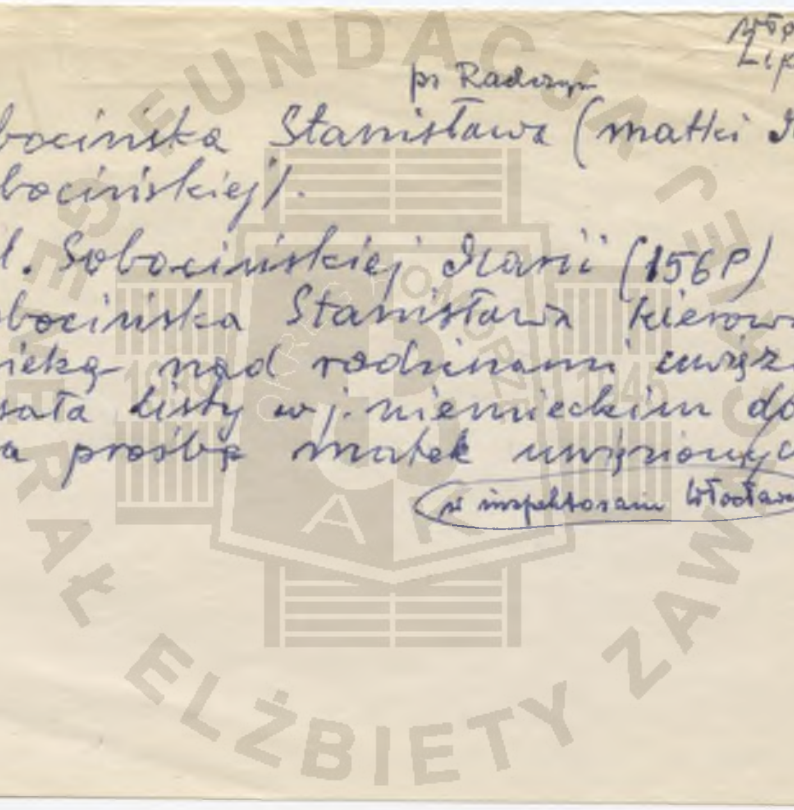 Lip
ps Radczyn
bocińska Stanisława (matki
bocińskiej).
l. Sobocińskiej Marii (156P)
bocińska Stanisława kierowa
ieką nad rodzinami uwięzi
sała listy w j. niemieckim do
a prośbę matek uwięzionych
w inspektoracie Włocławe
FUNDACJA GENERAŁ ELŻBIETY ZAWA
OKRĘG POMORZE
1939 1945
AK